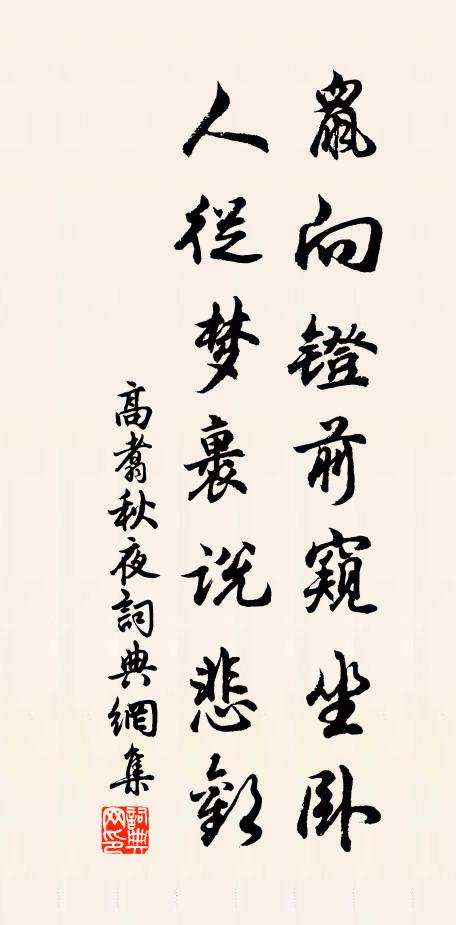 鼠向鐙前窺坐卧
人從梦裏說悲歡
高翥秋夜詞典網集
詞典網印